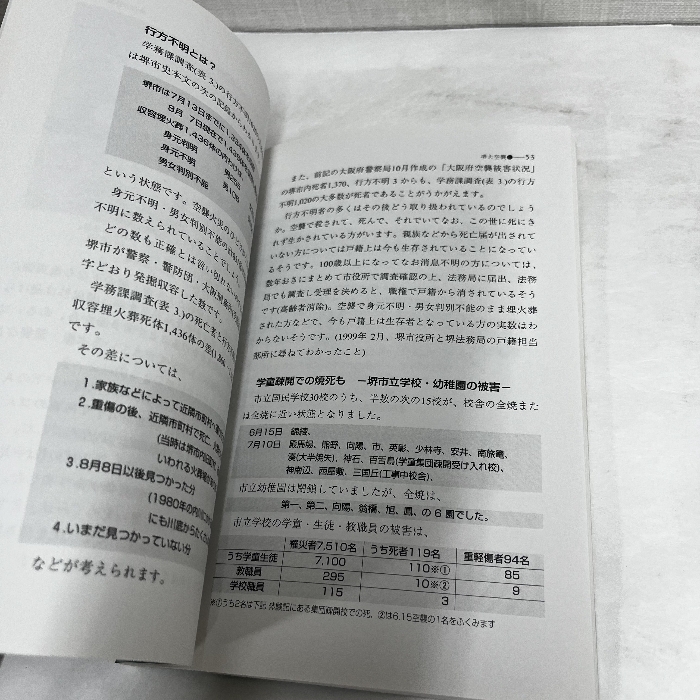 行方不明とは?
学務課調査(表3.)の行方不明
は堺市史本文の次の記録から
堺市は7月13日までに1,
8月 7日現在で1,436体
収容埋火葬1,436体の内わけは
身元判明 男
身元不明 男
男女判別不能
という状態です。空襲火災のひどい
身元不明・男女判別不能の
不明に数えられていることでしょ
どの数も正確とは言い切れな
堺市が警察・警防団・大阪
字どおり発掘収容した数です。
学務課調査(表3.)の死亡者と行
収容埋火葬死体1,436体の差(1,
です。
その差については、
1.家族などによって近隣市町村へ
2.重傷の後、近隣市町村で死亡
(当時は堺市内
いわれる火葬場
3.8月8日以後見つかった分
(1980年の内川
にも川底からたくさん
4.いまだ見つかっていない分
などが考えられます。
堺大空襲●──55
また、前記の大阪府警察局10月作成の「大阪府空襲被害状況」
の堺市内死者1,370、行方不明3からも、学務課調査(表3.)の行方
不明1,020の大多数が死者であることがうかがえます。
行方不明名の多くはその後どう取り扱われているのでしょう
か。空襲で殺されて、死んで、それでいてなお、この世に死にき
れず生かされている方がいます。親族などから死亡届が出されて
いない方については戸籍上は今も生存されていることになってい
るそうです。100歳以上になってなお消息不明の方については、
数年おきにまとめて市役所で調査確認の上、法務局に届出、法務
局でも調査し受理を決めると、職権で戸籍から消されているそう
です(高齢者消除)。空襲で身元不明・男女判別不能のまま埋火葬
された方などで、今も戸籍上は生存者となっている方の実数はわ
からないそうです。(1999年2月、堺市役所と堺法務局の戸籍担当
部所に尋ねてわかったこと)
学童疎開での焼死も −堺市立学校・幼稚園の被害−
市立国民学校30校のうち、半数の次の15校が、校舎の全焼また
は全焼に近い状態となりました。
6月15日 錦綾、
7月10日 殿馬場、熊野、向陽、市、英彰、少林寺、安井、南旅篭、
湊(大半焼失)、神石、百舌鳥(学童集団疎開受け入れ校)、
神南辺、西陶器、三国丘(工事中校舎)、
市立幼稚園は閉鎖していましたが、全焼は、
第一、第二、向陽、翁橋、旭、鳳、の6園でした。
市立学校の学童・生徒・教職員の被害は、
罹災者7,510名 うち死者119名 重軽傷者94名
うち学童生徒 7,100 110※① 85
教職員 295 10※② 9
学校職員 115 3
※①のうち2名は下記 体験記にある集団疎開校での死、②は6.15空襲の1名をふくみます